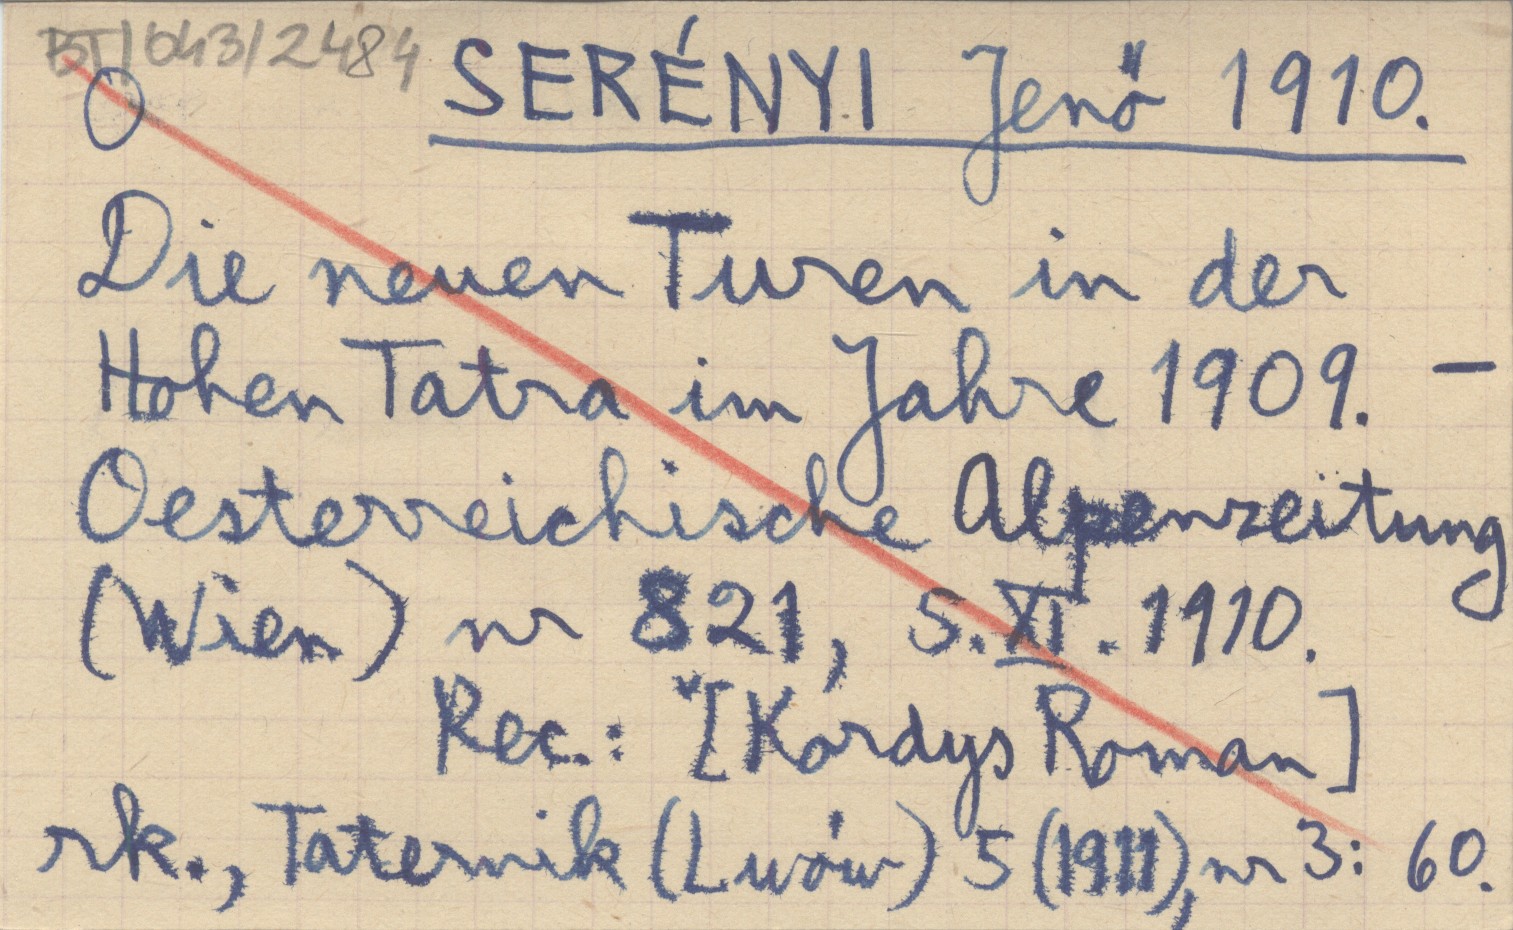 BT/043/2484
O SERÉNYI Jenő 1910.
Die neuen Turen in der
Hohen Tatra im Jahre 1909. —
Oesterreichische Alpenzeitung
(Wien) nr 821, 5.XI.1910.
Rec.: [Kordys Roman]
rk., Taternik (Lwów) 5 (1911), nr 3: 60.